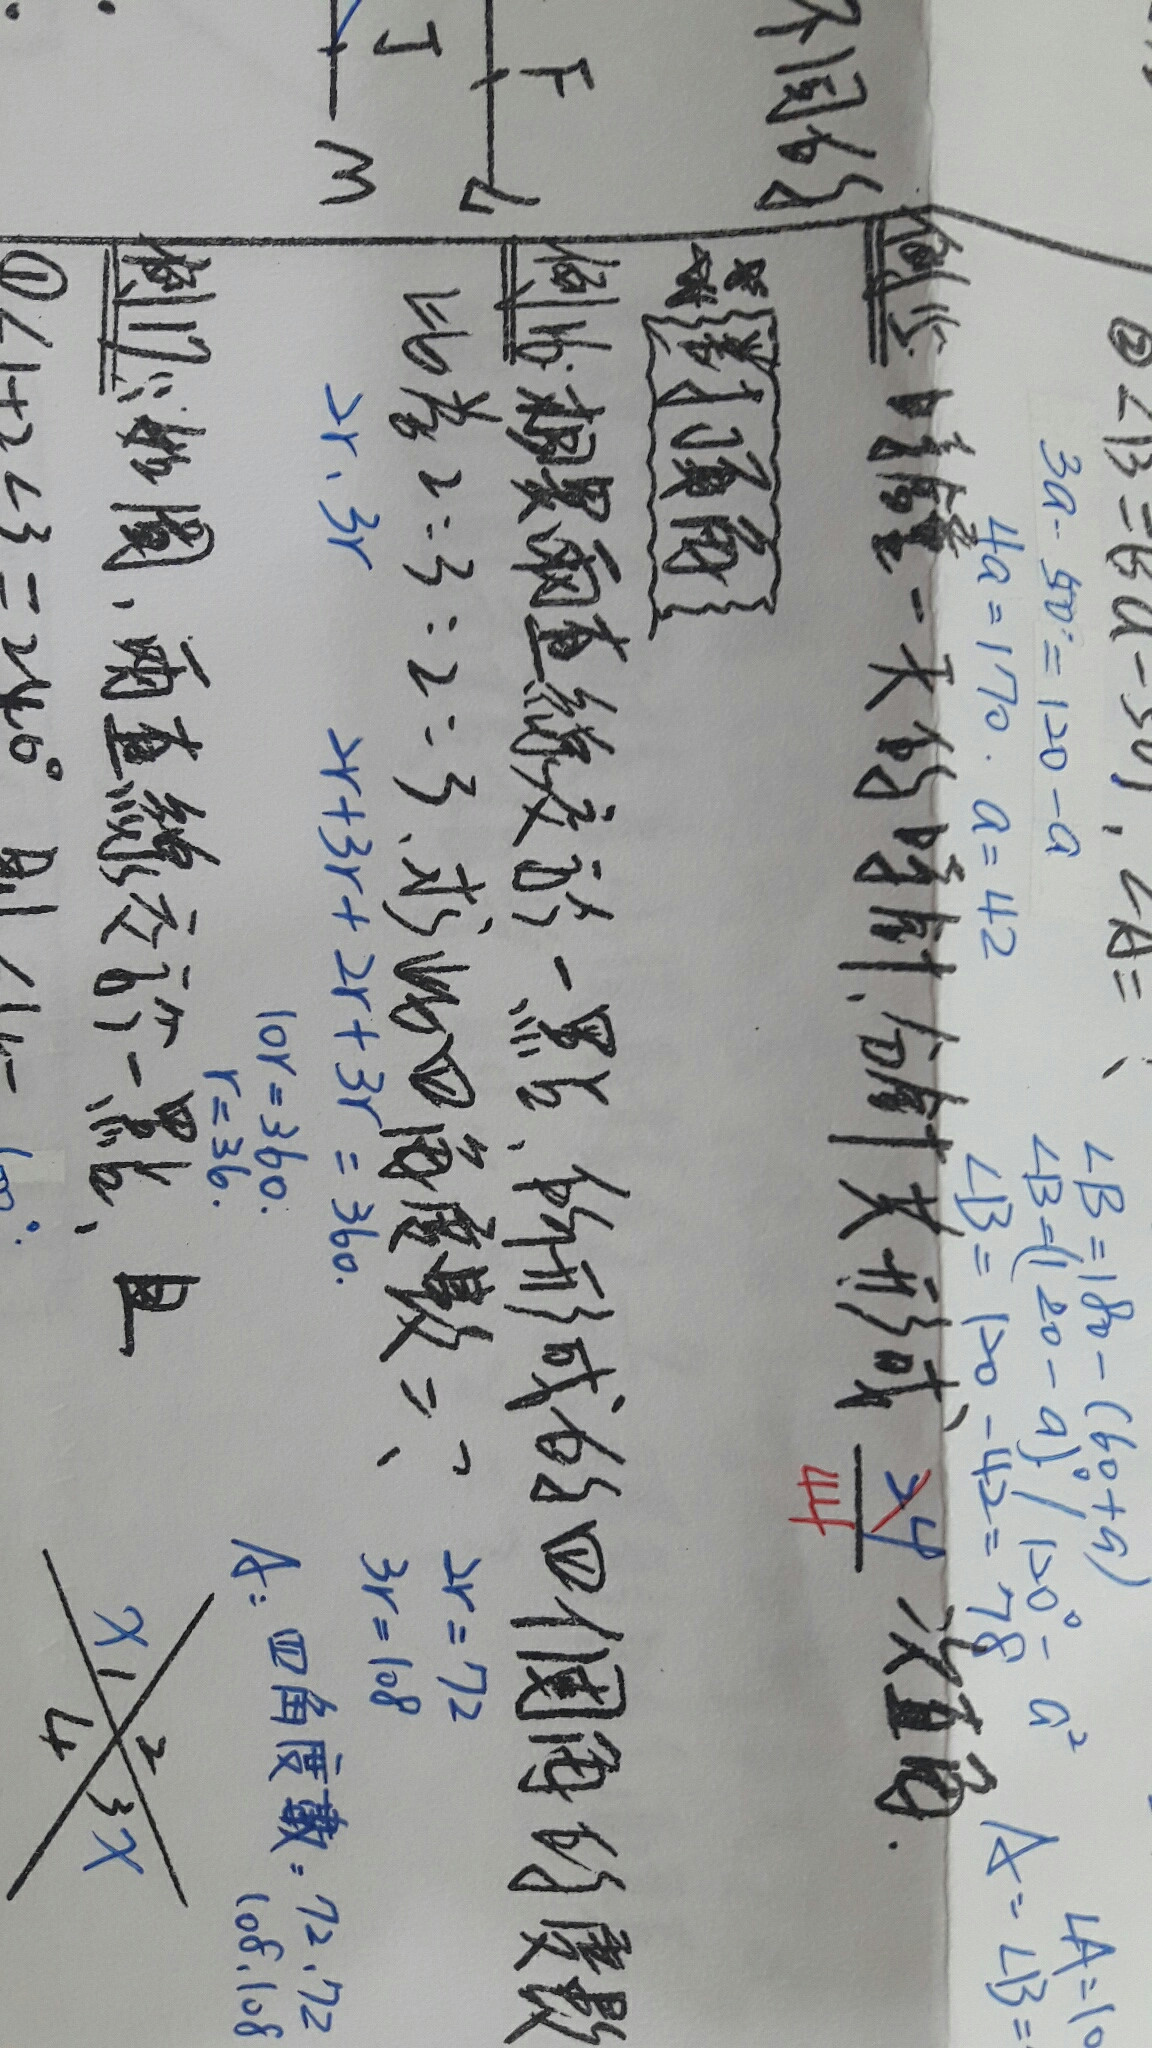 不同的
F
L
J
M
②∠B=(3a-50)°,∠A=
3a-50°=120-a
4a=170. a=42
∠B=180-(60+a)
∠B=(120-a)°/120°-a²
∠B=120-42=78
∠A=10
A=∠B=
例15. 時鐘一天的時針、分針夾形成 24 次直角.
44
對頂角
例16. 相異兩直線交於一點,所形成的四個角的度數
比為2:3:2:3,求此四角度數=?
2r、3r
2r+3r+2r+3r=360.
10r=360.
r=36.
2r=72
3r=108
A:四角度數=72.72
108.108
例17.如圖,兩直線交於一點,且
x 1 2 3 x
4
①∠1+∠3=240°則∠1=